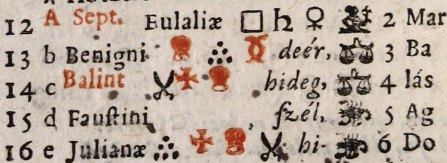 12 A Sept. Eulaliæ □ ♄ ♀ 2 Mar
13 b Benigni deér, 3 Ba
14 c Balint hideg, 4 lás
15 d Fauſtini ſzél, 5 Ag
16 e Julianæ hi- 6 Do